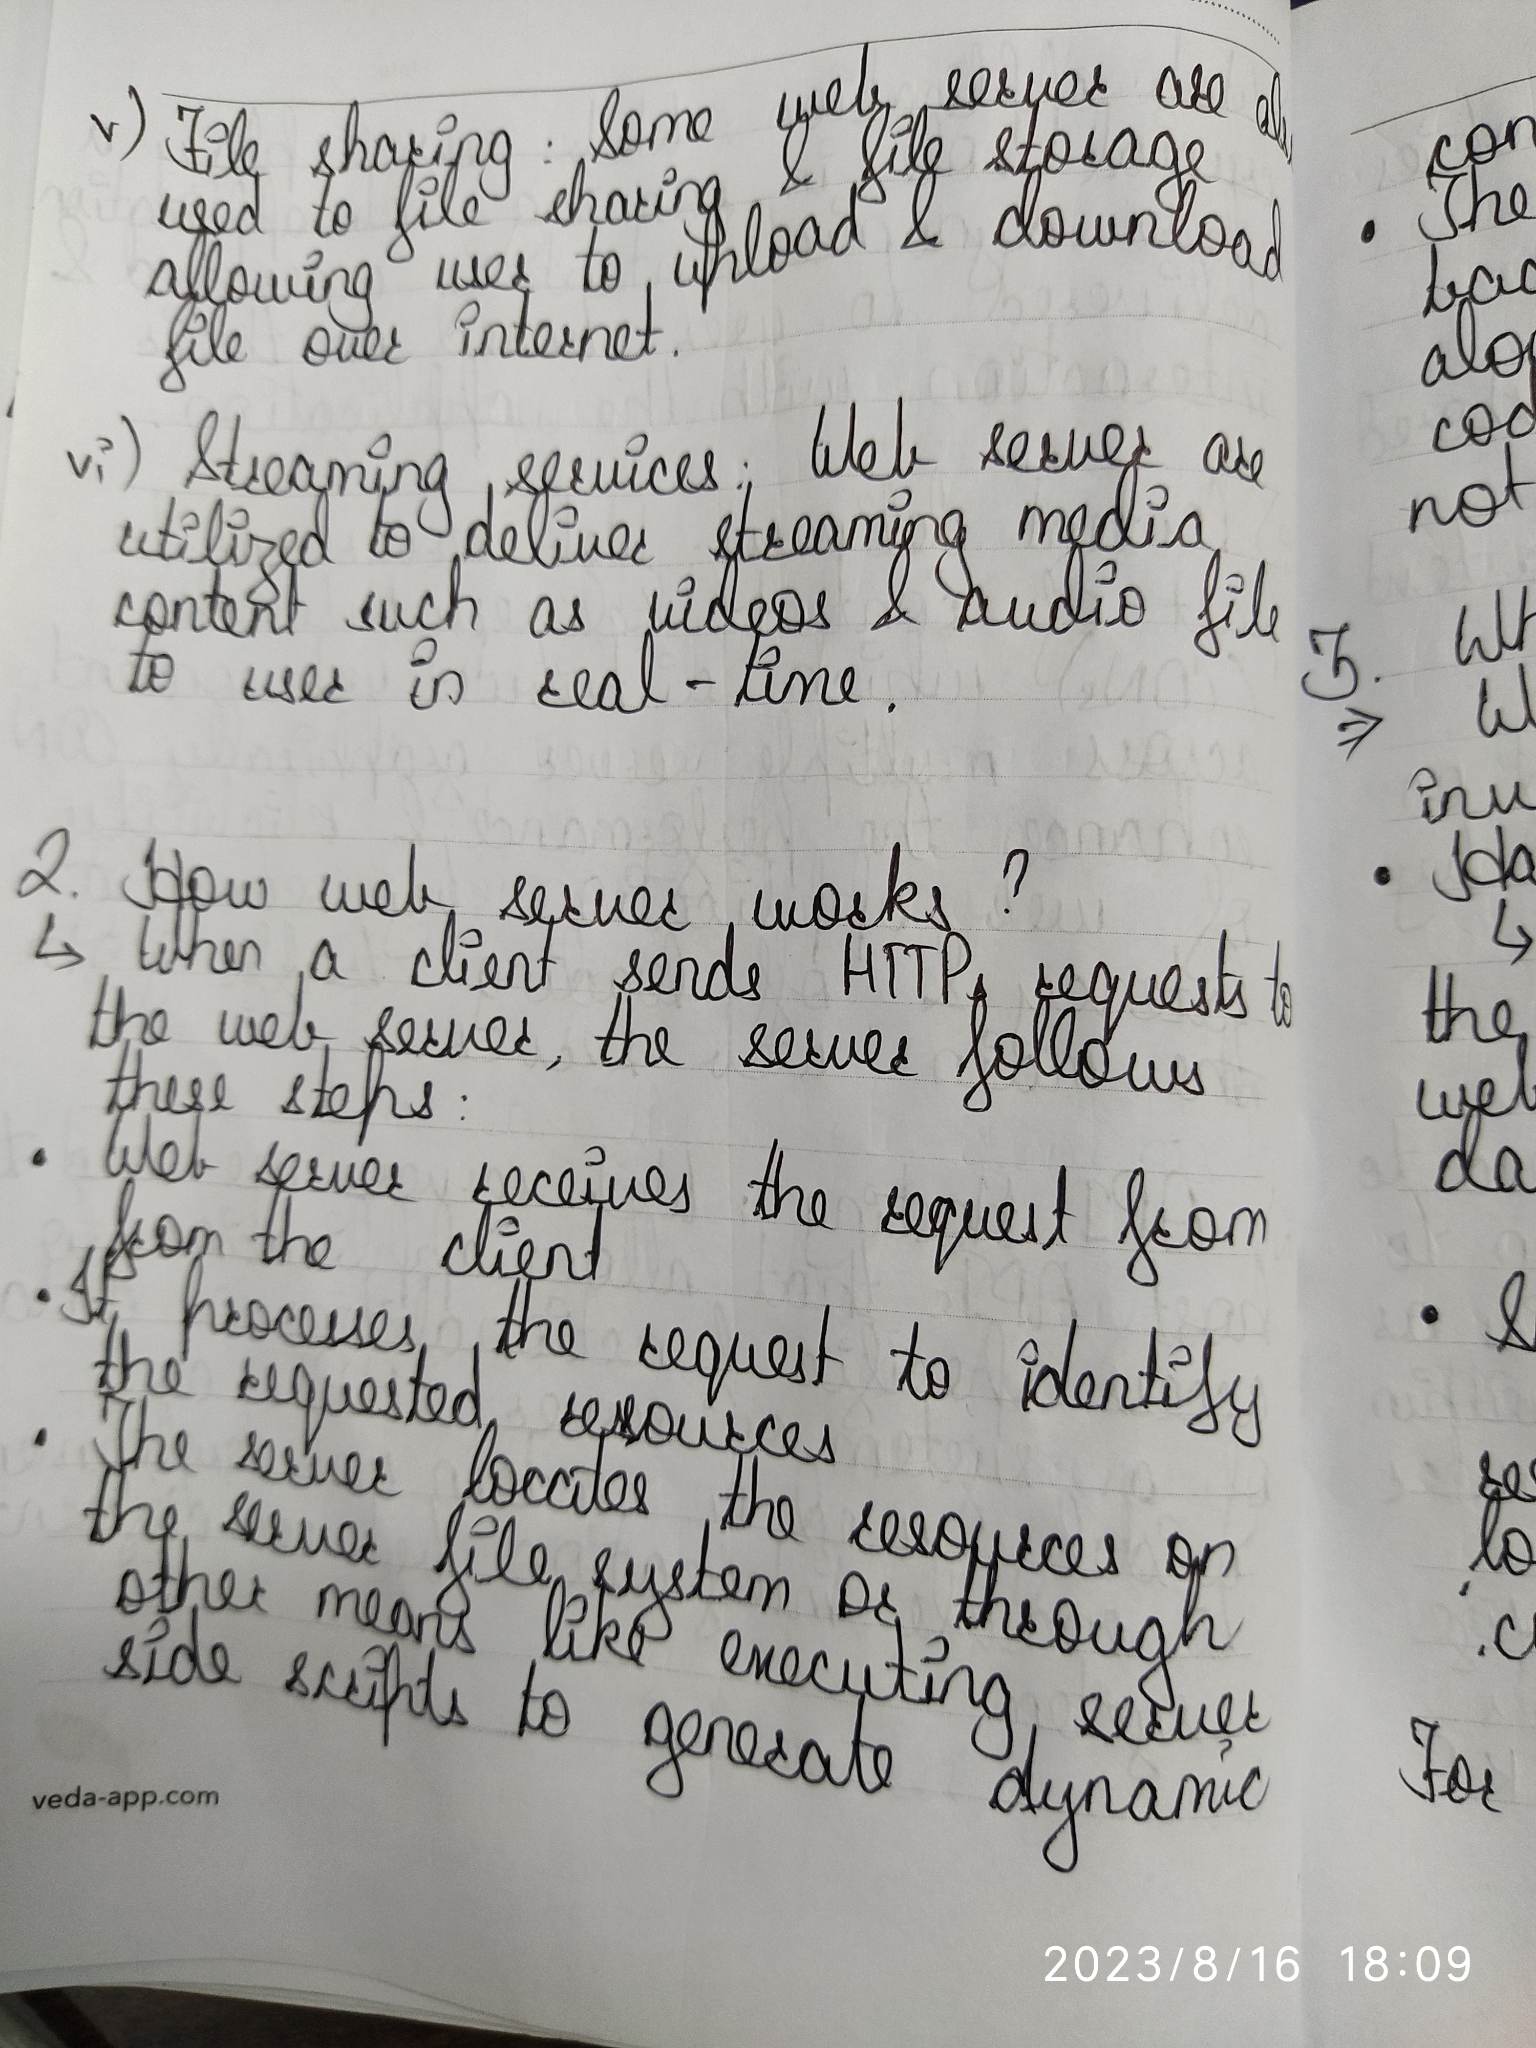 v) File sharing : Some web server are
used to file sharing & file storage
allowing user to upload & download
file over internet.
vi) Streaming services : Web server are
utilized to deliver streaming media
content such as videos & audio file
to user in real - time.
2. How web server works ?
↳ When a client sends HTTP requests to
the web server, the server follows
these steps :
• Web server receives the request from
from the client
• It processes the request to identify
the requested resources
• The server locates the resources on
the server file system or through
other means like executing server
side scripts to generate dynamic
veda-app.com
• The
not
3.
⇒
•
↳
the
•
For
2023/8/16 18:09